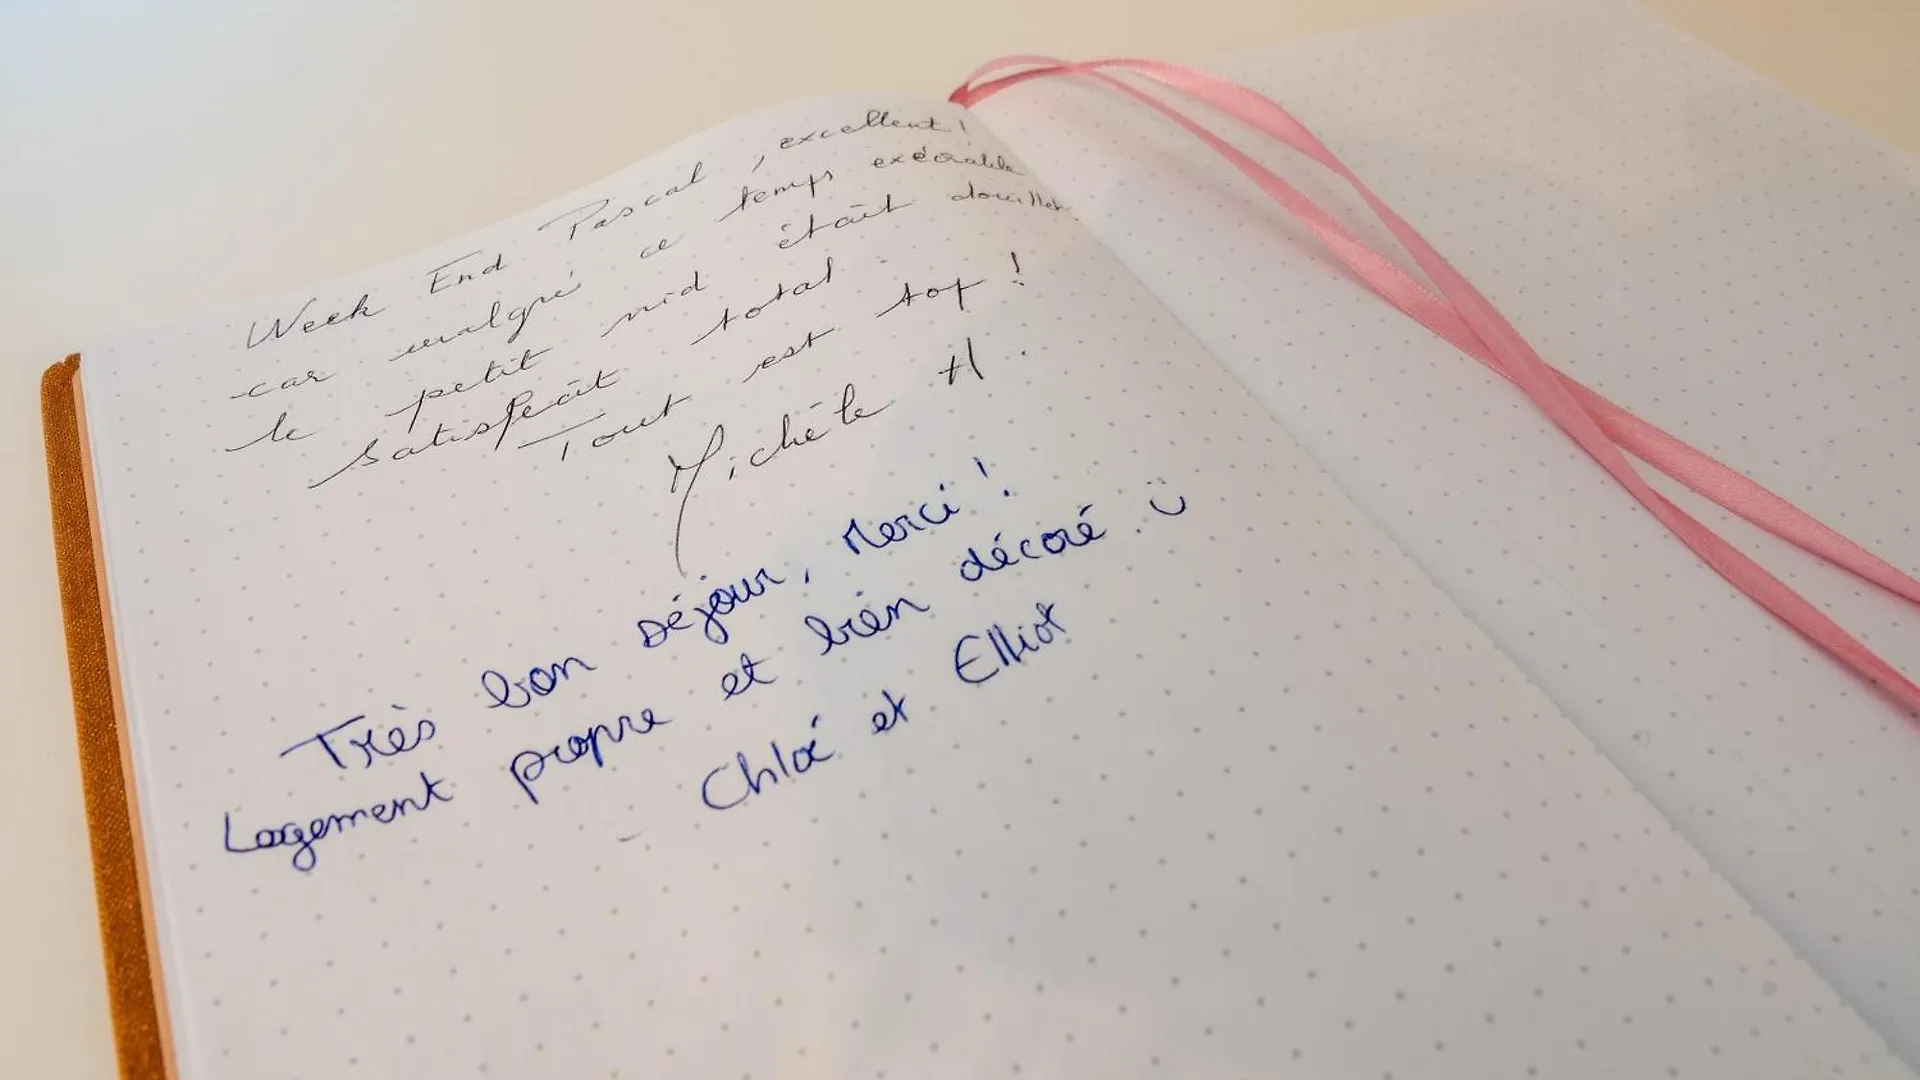 Week End Pascal, excellent!
car malgré ce temps exécrable
le petit nid était douillet
satisfait total.
Tout est top!
Michèle H.
Très bon séjour, Merci!
Logement propre et bien décoré. ü
Chloé et Elliot